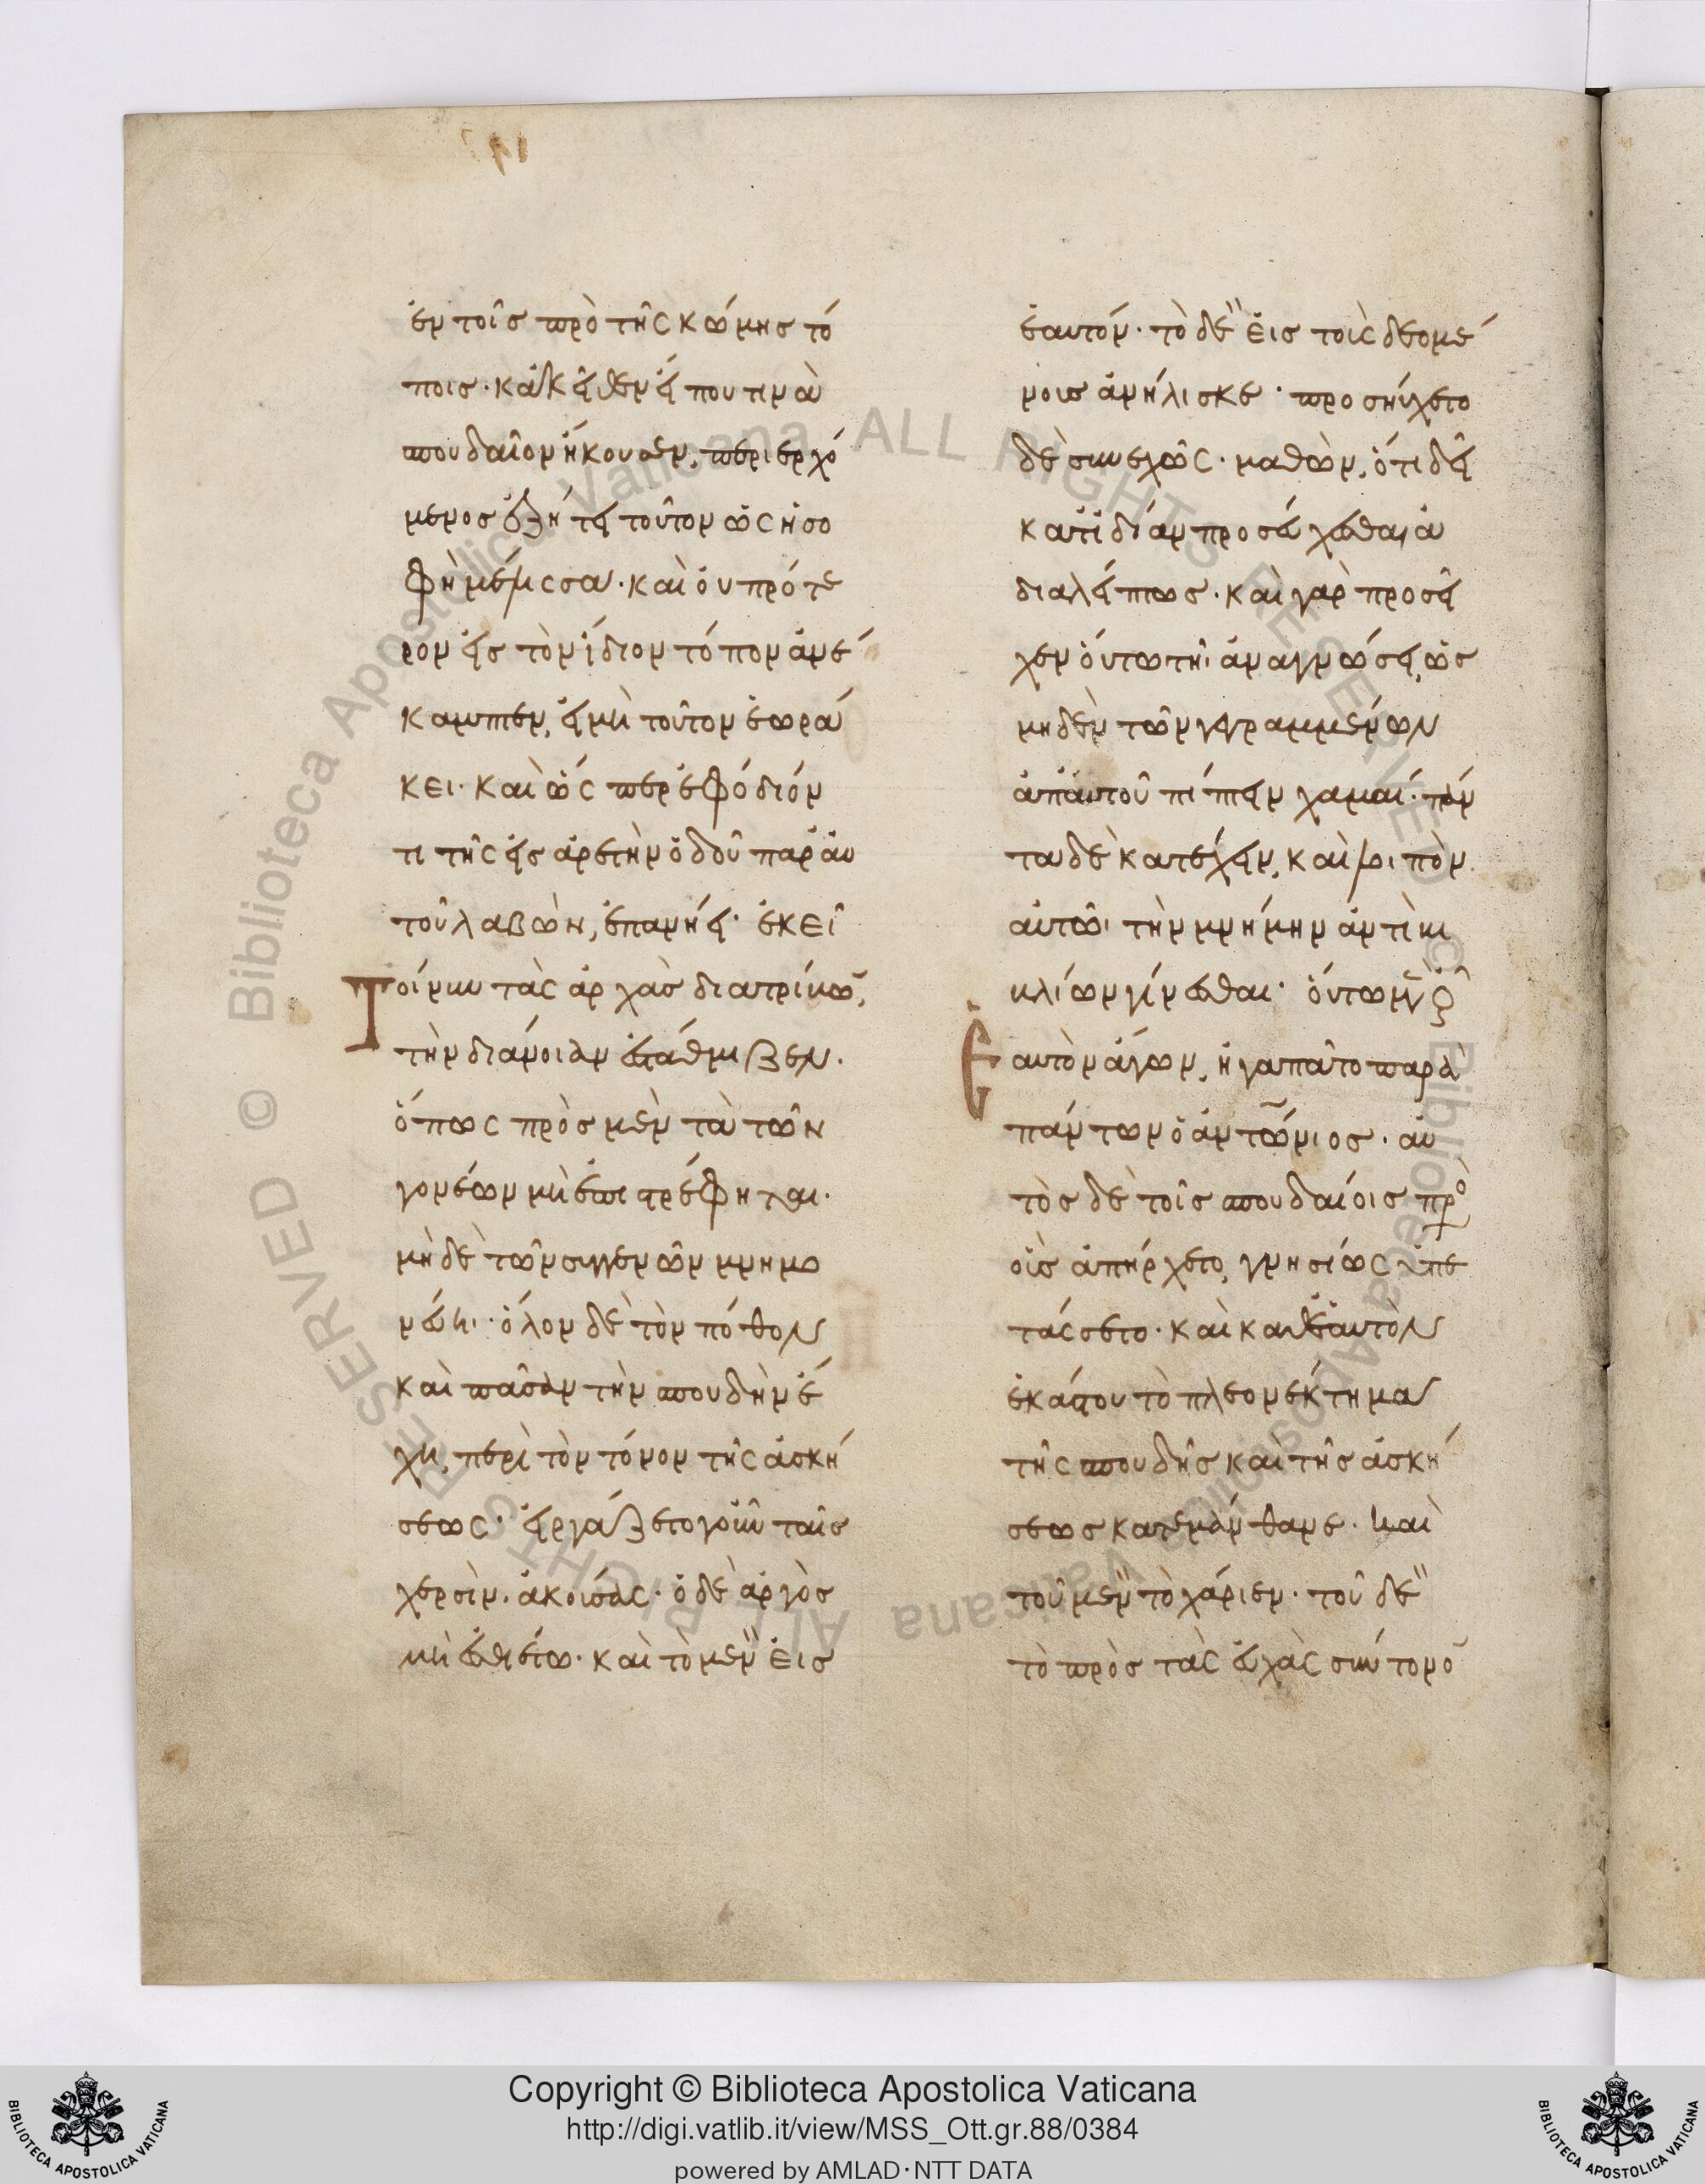 ἐν τοῖς πρὸ τῆς κώμης τό
ποις· κἀκεῖθεν εἴ που τινὰ
σπουδαῖον ἤκουσεν, περιερχό
μενος ἐζήτει τοῦτον ὡς ἡ σο
φὴ μέλισσα· καὶ οὐ πρότε
ρον εἰς τὸν ἴδιον τόπον ἀνέ
καμπτεν, εἰ μὴ τοῦτον ἑωρά
κει· καὶ ὥσπερ ἐφόδιόν
τι τῆς εἰς ἀρετὴν ὁδοῦ παρ' αὐ
τοῦ λαβὼν, ἐπανῄει· ἐκεῖ
Τοίνυν τὰς ἀρχὰς διατρίβων,
τὴν διάνοιαν ἐστάθμιζεν·
ὅπως πρὸς μὲν τὰ τῶν
γονέων μὴ ἐπιστρέφηται·
μὴ δὲ τῶν συγγενῶν μνημο
νεύῃ· ὅλον δὲ τὸν πόθον
καὶ πᾶσαν τὴν σπουδὴν ἔ
χῃ, περὶ τὸν τόνον τῆς ἀσκή
σεως· εἰργάζετο γοῦν ταῖς
χερσὶν. ἀκούσας· ὁ δὲ ἀργὸς
μὴ ἐσθιέτω· καὶ τὸ μὲν εἰς
ἑαυτόν· τὸ δὲ εἰς τοὺς δεομέ
νους ἀνήλισκε· προσηύχετο
δὲ συνεχῶς· μαθὼν, ὅτι δεῖ
κατϊδίαν προσεύχεσθαι ἀ
διαλείπτως· καὶ γὰρ προσεῖ
χεν οὕτω τῇ ἀναγνώσει, ὡς
μηδὲν τῶν γεγραμμένων
ἀπ' αὐτοῦ πίπτειν χαμαί· πάν
τα δὲ κατέχειν, καὶ λοιπὸν
αὐτῶ τὴν μνήμην ἀντὶ βι
βλίων γίνεσθαι· οὕτω μὲν οὖν
Ἑαυτὸν ἄγων, ἠγαπᾶτο παρὰ
πάντων ὁ ἀντώνιος· αὐ
τὸς δὲ τοῖς σπουδαίοις πρὸς
οὓς ἀπήρχετο, γνησίως ὑπε
τάσσετο· καὶ καθ' ἑαυτὸν
ἑκάστου τὸ πλεονέκτημα
τῆς σπουδῆς καὶ τῆς ἀσκή
σεως κατεμάνθανε· καὶ
τοῦ μὲν τὸ χάριεν· τοῦ δὲ
τὸ πρὸς τὰς εὐχὰς σύντονον
Copyright © Biblioteca Apostolica Vaticana
http://digi.vatlib.it/view/MSS_Ott.gr.88/0384
powered by AMLAD·NTT DATA